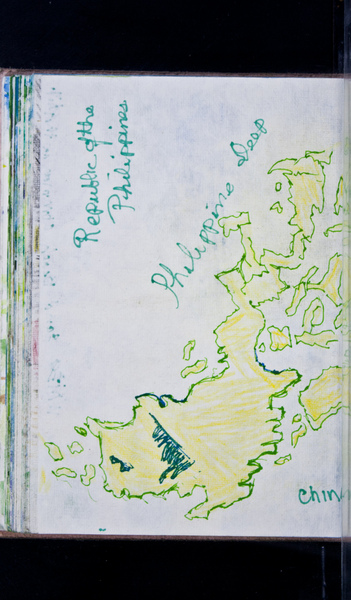 Republic of the
Philippines
Philippine Deep
Chin